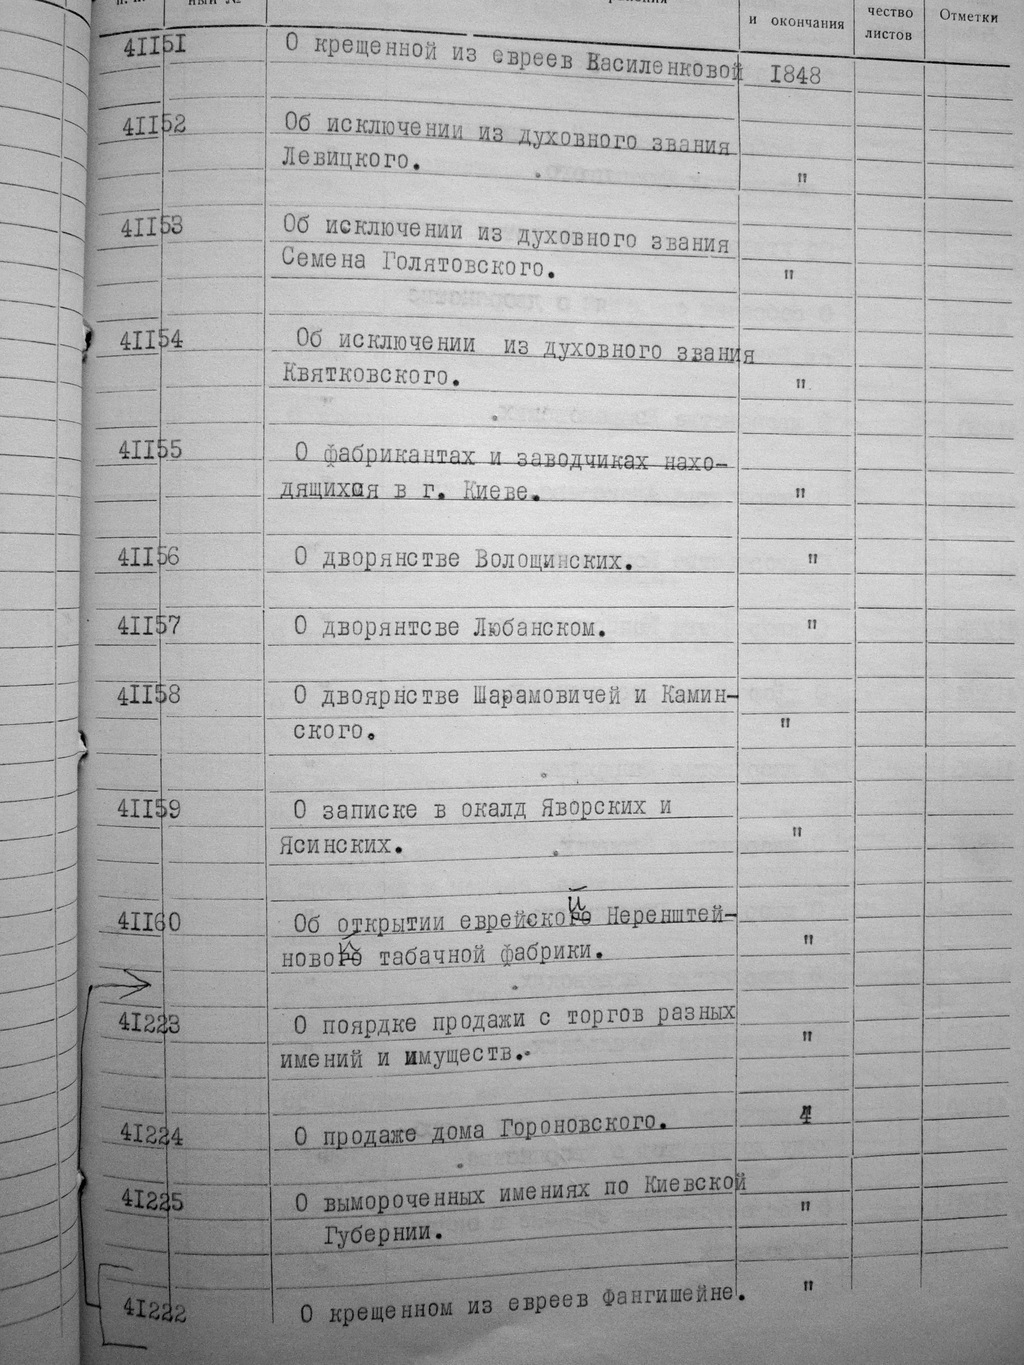 и окончания
чество
листов
Отметки
41151 О крещенной из евреев Василенковой 1848
41152 Об исключении из духовного звания
Левицкого. "
41153 Об исключении из духовного звания
Семена Голятовского. "
41154 Об исключении из духовного звания
Квятковского. "
41155 О фабрикантах и заводчиках нахо-
дящихся в г. Киеве. "
41156 О дворянстве Волощинских. "
41157 О дворянтсве Любанском. "
41158 О двоярнстве Шарамовичей и Камин-
ского. "
41159 О записке в окалд Яворских и
Ясинских. "
41160 Об открытии еврейской Неренштей-
новой табачной фабрики. "
41223 О поярдке продажи с торгов разных
имений и имуществ. "
41224 О продаже дома Гороновского.
41225 О вымороченных имениях по Киевской
Губернии. "
41222 О крещенном из евреев Фангишейне. "